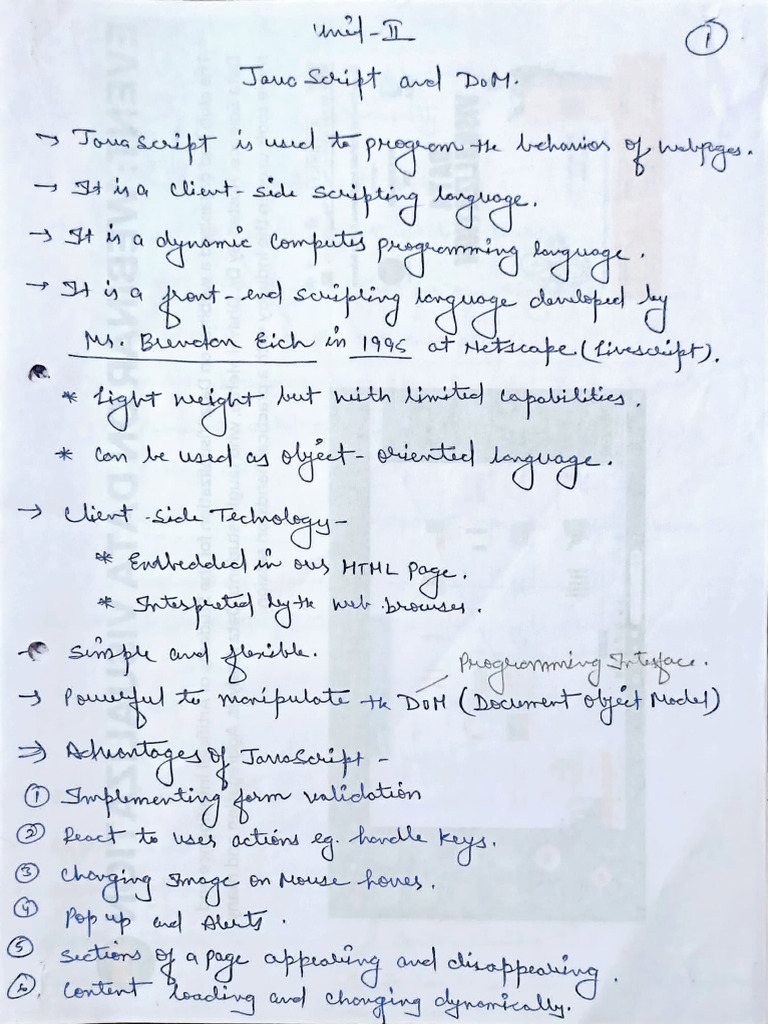 Unit-II
①
JavaScript and DOM.
→ JavaScript is used to program the behavior of webpages.
→ It is a client-side scripting language.
→ It is a dynamic computer programming language.
→ It is a front-end scripting language developed by
Mr. Brendon Eich in 1995 at Netscape (Livescript).
* Light weight but with limited capabilities.
* Can be used as object-oriented language.
→ Client-side Technology-
* Embedded in our HTML page.
* Interpreted by the web browser.
→ Simple and flexible.
Programming Interface.
→ Powerful to manipulate the DOM (Document Object Model)
⇒ Advantages of JavaScript -
① Implementing form validation
② React to user actions eg. handle keys.
③ Changing Image on Mouse hover.
④ Pop up and Alerts.
⑤ Sections of a page appearing and disappearing.
⑥ Content loading and changing dynamically.